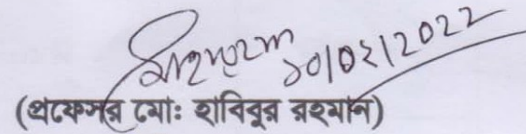 ১০/০২/2022
(প্রফেসর মোঃ হাবিবুর রহমান)